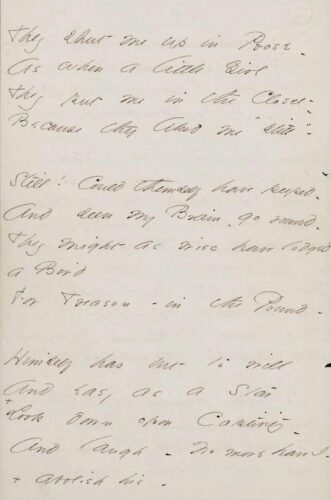 They shut me up in Prose -
As when a little Girl
They put me in the Closet -
Because they liked me "still" -
Still! Could themself have peeped -
And seen my Brain - go round -
They might as wise have lodged
a Bird
For Treason - in the Pound -
Himself has but to will
And easy as a Star
+ Look down upon Captivity -
And laugh - No more have I -
+ Abolish his -